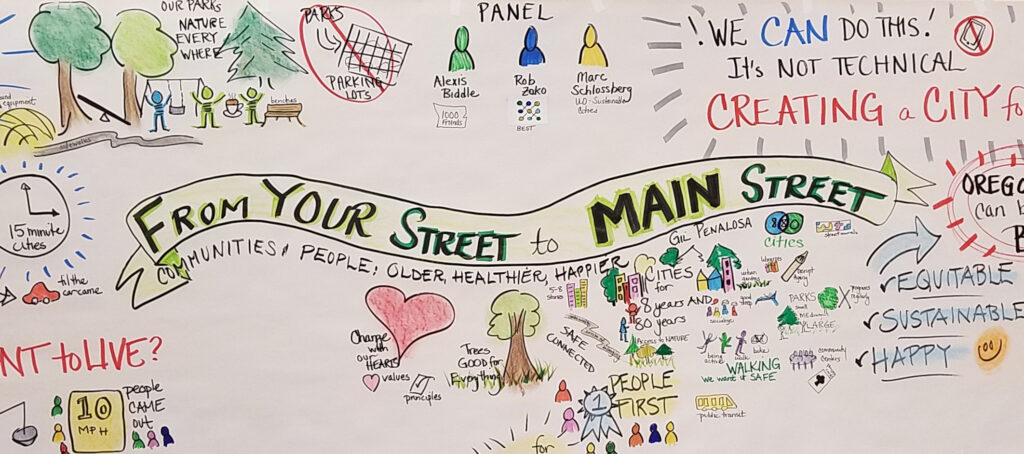 OUR PARKS
NATURE
EVERY
WHERE
benches
sidewalks
equipment
PARKS
PARKING
LOTS
PANEL
Alexis
Biddle
1000
Friends
Rob
Zako
BEST
Marc
Schlossberg
UO-Sustainable
Cities
! WE CAN DO THIS!
IT'S NOT TECHNICAL
CREATING a CITY fo
15 minute
cities
'til the
car came
FROM YOUR STREET to MAIN STREET
COMMUNITIES & PEOPLE; OLDER, HEALTHIER, HAPPIER
GIL PENALOSA
880
cities
CITIES
for
8 years AND
80 years
5-8
Stories
SAFE
CONNECTED
Access to NATURE
urban
gardens
libraries
socialize
good
sleep
PARKS
small
MEDIUM
LARGE
being
active
walk
bike
WALKING
we want it SAFE
community
Centers
public transit
Change
with
our
HEARTS
values
principles
Trees
GOOD for
Everything
1
PEOPLE
FIRST
for
OREGO
can b
B
EQUITABLE
SUSTAINABLE
HAPPY
NT to LIVE?
10
MPH
people
CAME
OUT